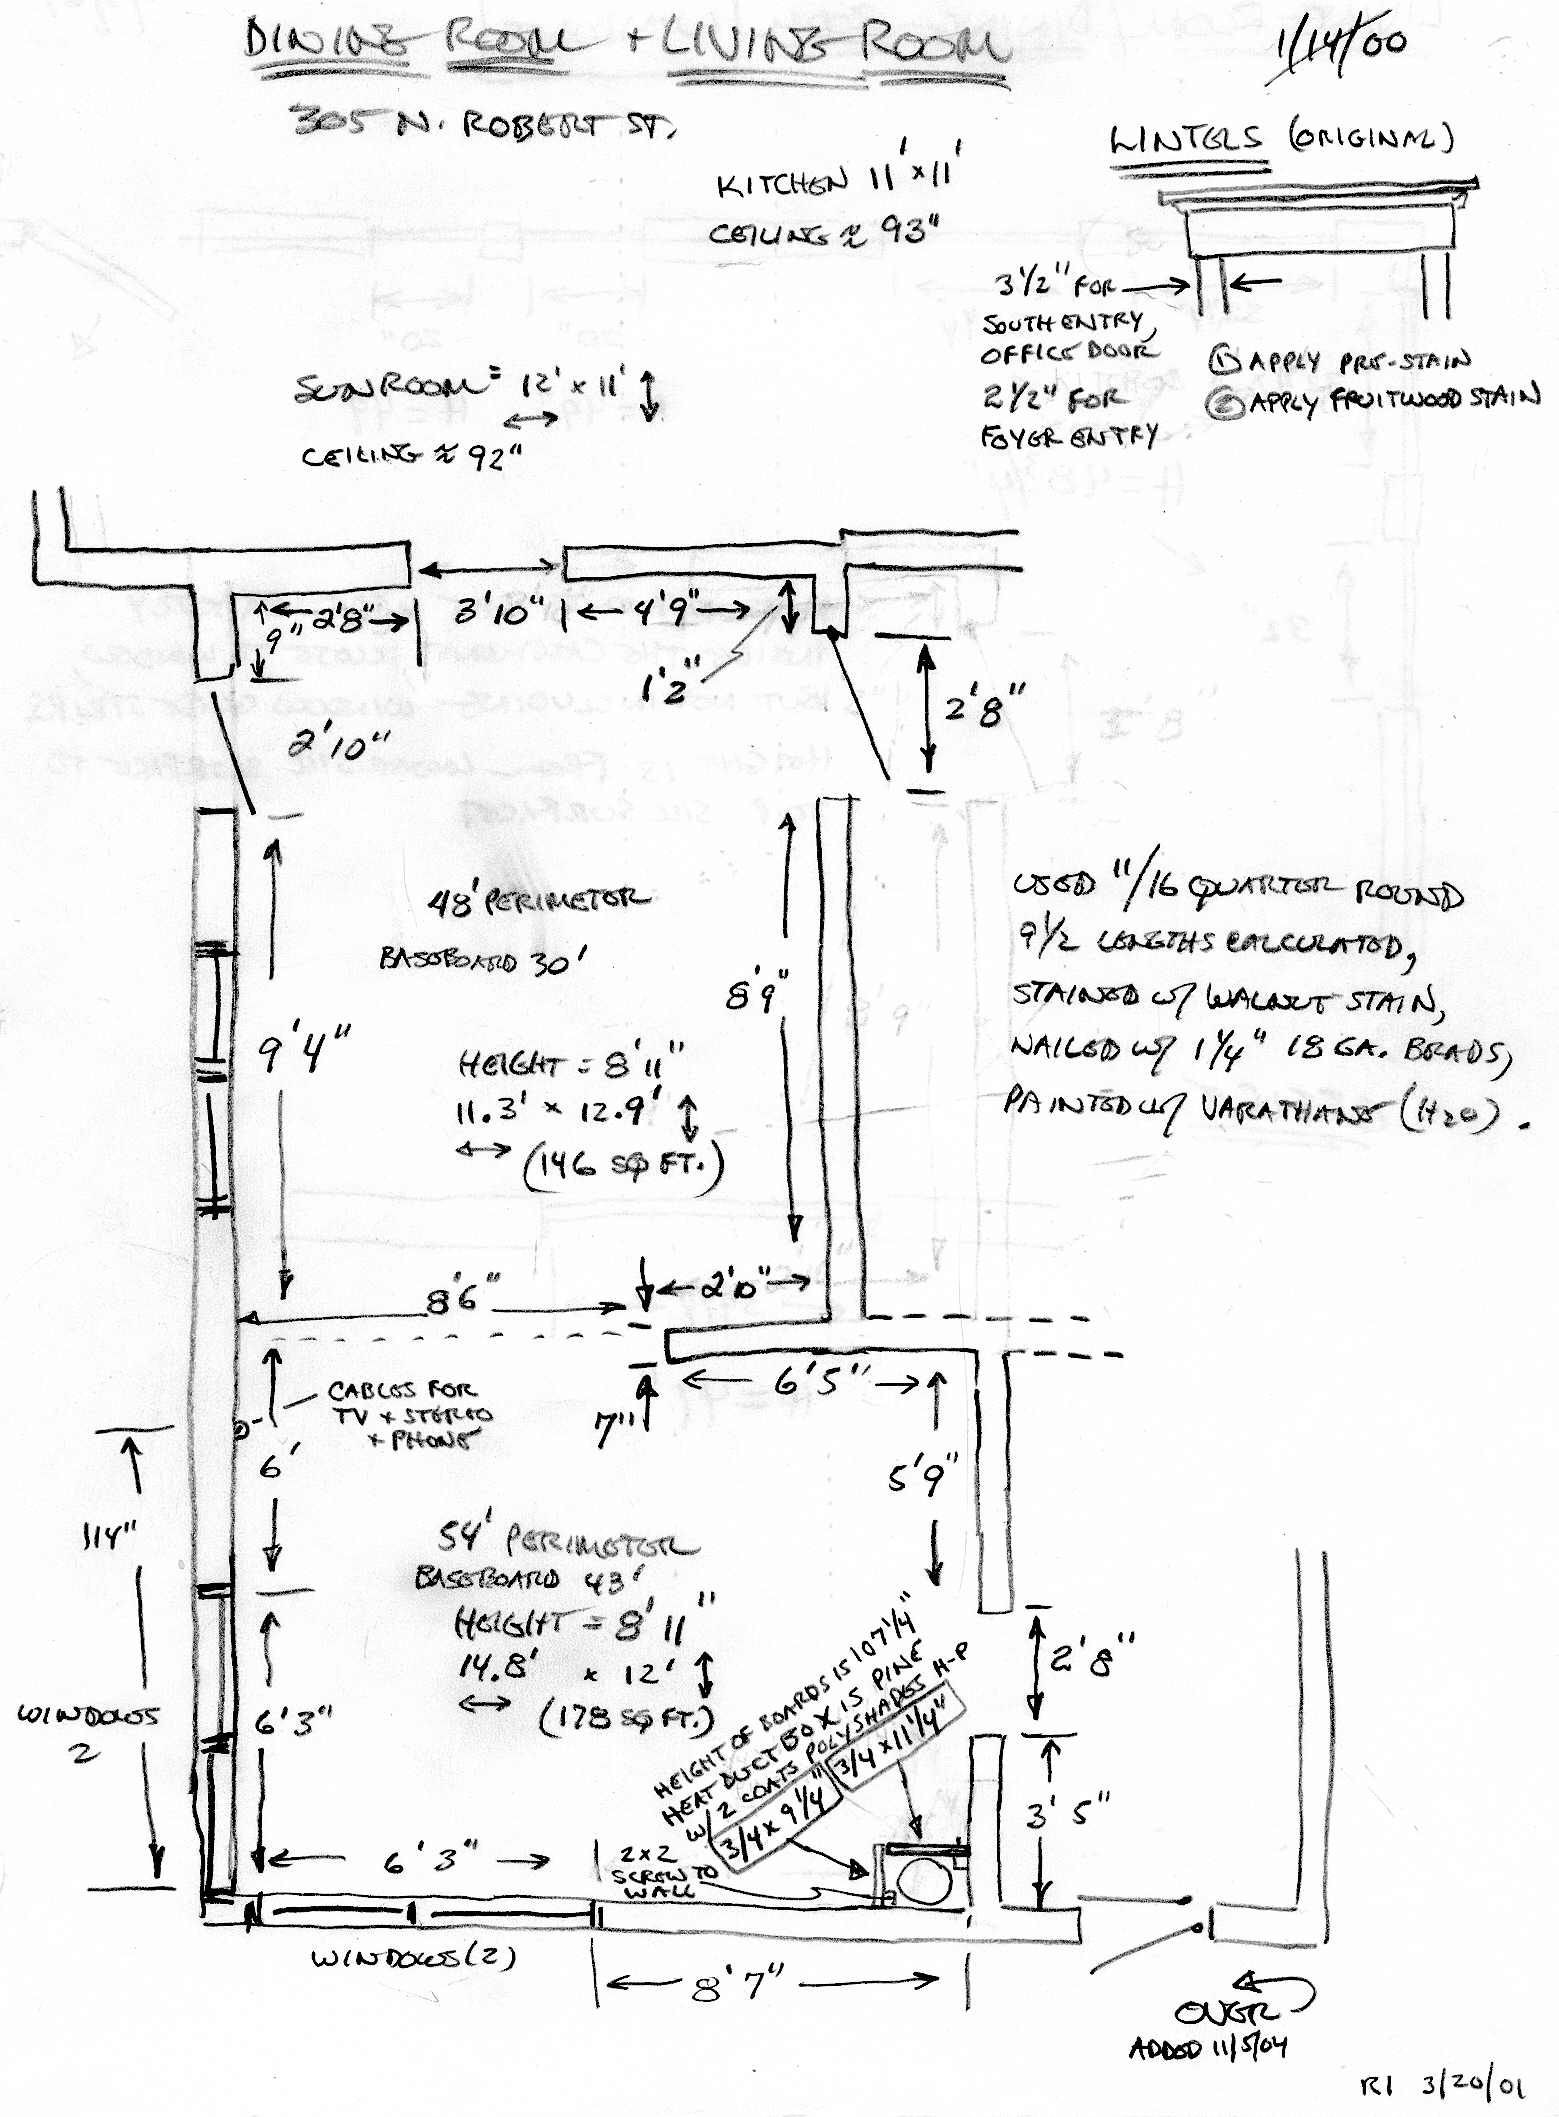 DINING ROOM + LIVING ROOM
1/14/00
305 N. ROBERT ST.
KITCHEN 11' x 11'
CEILING ≈ 93"
LINTELS (ORIGINAL)
3 1/2" FOR
SOUTH ENTRY,
OFFICE DOOR
2 1/2" FOR
FOYER ENTRY
① APPLY PRE-STAIN
② APPLY FRUITWOOD STAIN
SUNROOM = 12' x 11'
CEILING ≈ 92"
9"
2'8"
3'10"
4'9"
1'2"
2'8"
2'10"
48' PERIMETER
BASEBOARD 30'
8'9"
9'4"
HEIGHT = 8'11"
11.3' x 12.9'
(146 SQ FT.)
USED 11/16 QUARTER ROUND
9 1/2 LENGTHS CALCULATED,
STAINED W/ WALNUT STAIN,
NAILED W/ 1 1/4" 18 GA. BRADS,
PAINTED W/ VARATHANE (H2O).
8'6"
2'10"
6'5"
7"
CABLES FOR
TV + STEREO
+ PHONE
6'
5'9"
114"
54' PERIMETER
BASEBOARD 43'
HEIGHT = 8'11"
14.8' x 12'
(178 SQ FT.)
2'8"
WINDOWS
2
6'3"
HEIGHT OF BOARDS IS 107 1/4"
HEAT DUCT BOX IS PINE
W/ 2 COATS POLYSHADES H-P
3/4 x 9 1/4"
3/4 x 11 1/4"
3'5"
6'3"
2x2
SCREW TO
WALL
WINDOWS (2)
8'7"
OVER
ADDED 11/5/04
R1 3/20/01